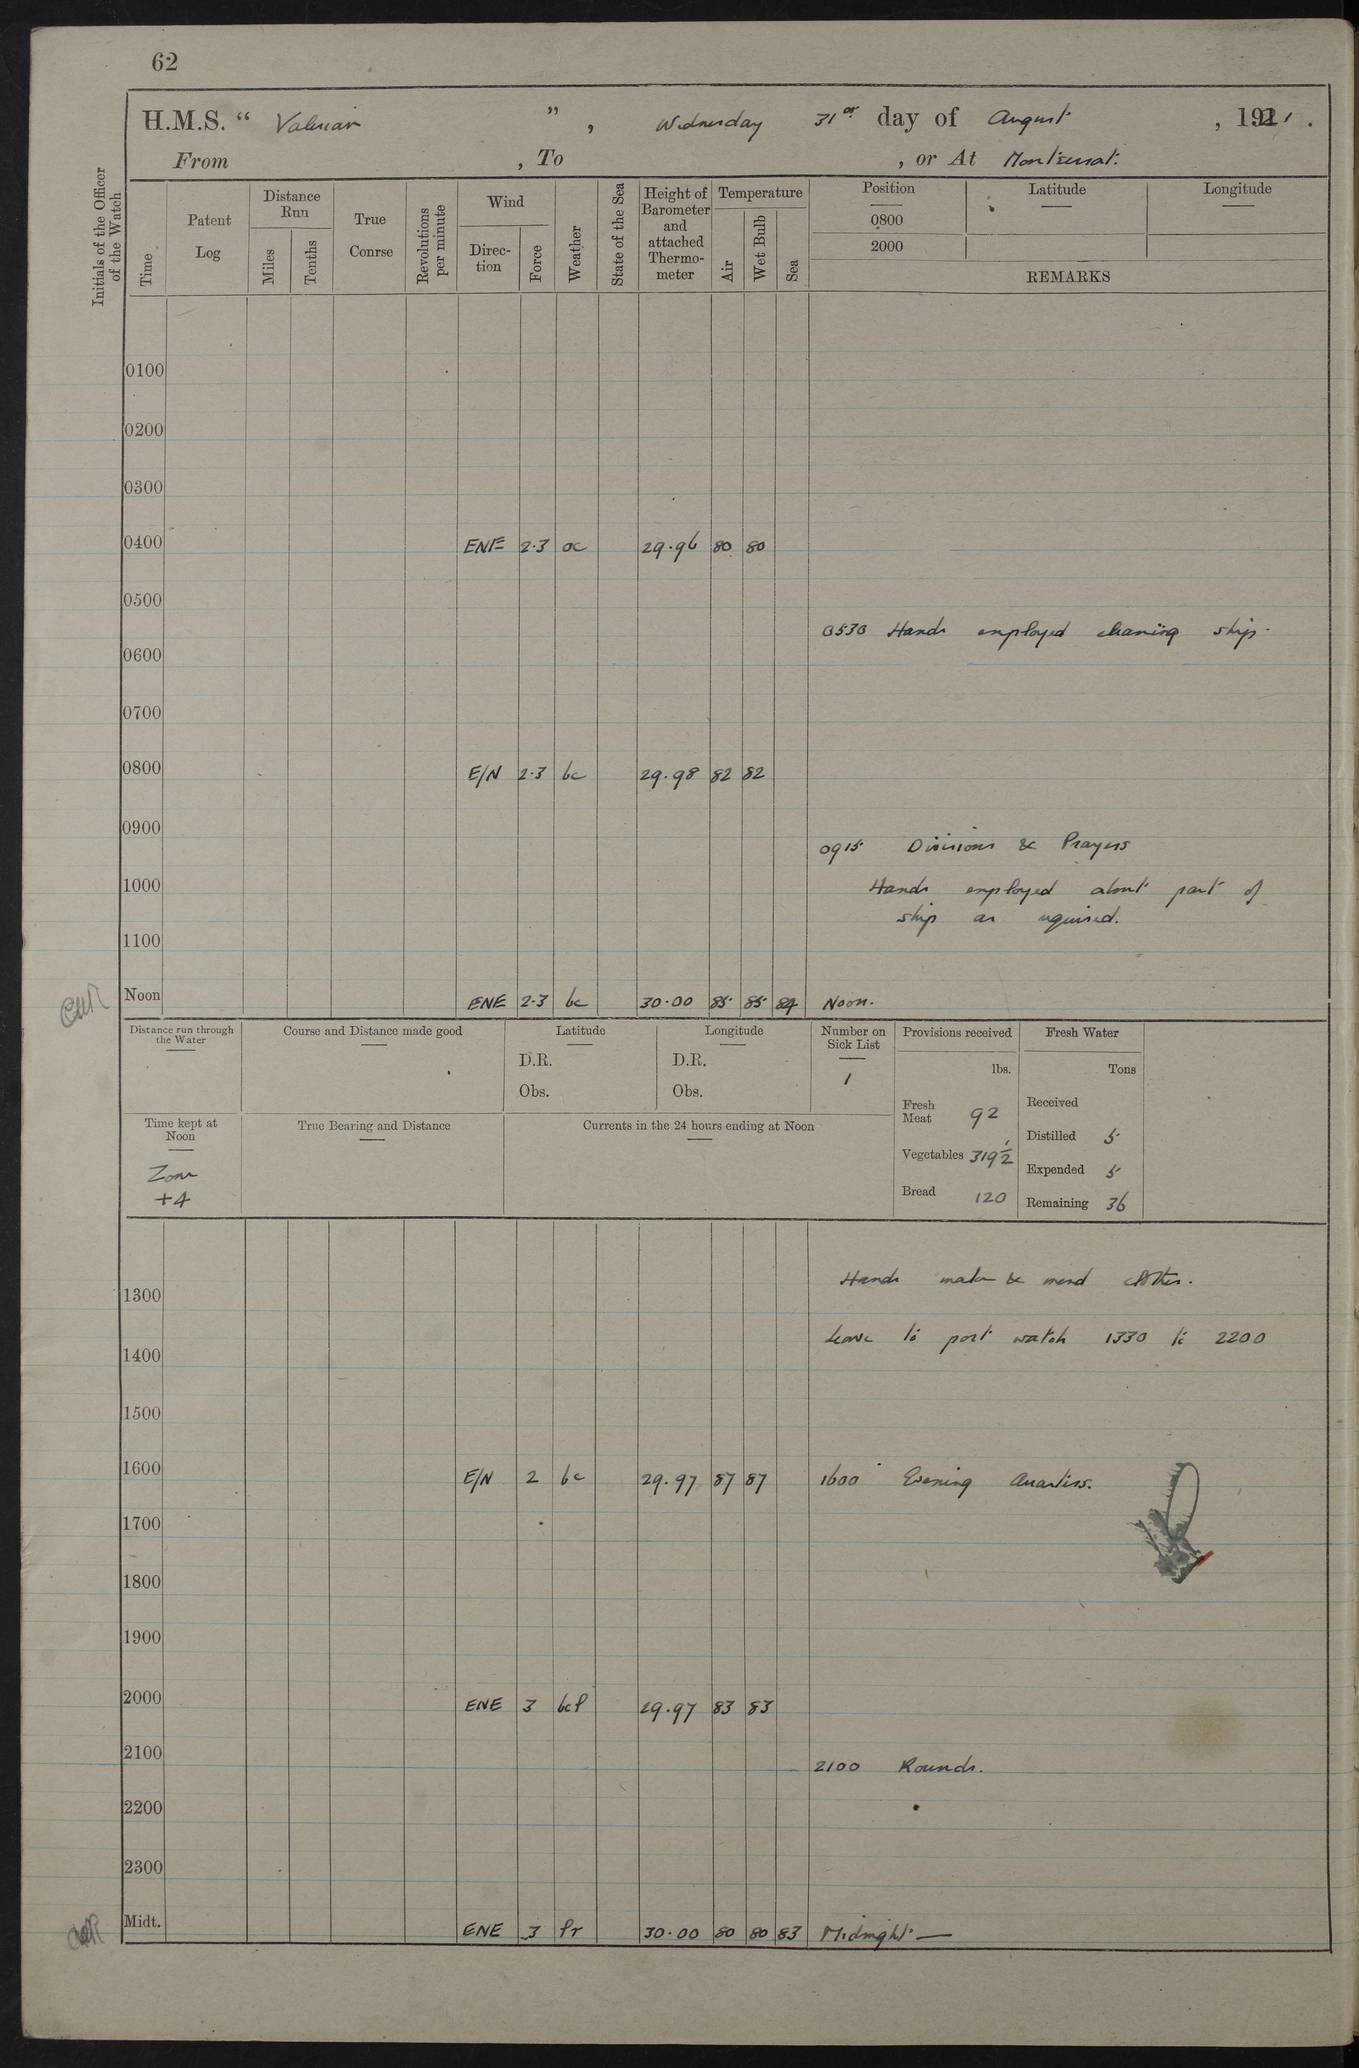 62
H.M.S. “ Valerian ” , Wednesday 31st day of August , 1921 .
From , To , or At Montserrat.
Initials of the Officer of the Watch
Time
Patent Log
Distance Run
Miles
Tenths
True Course
Revolutions per minute
Wind
Direc-tion
Force
Weather
State of the Sea
Height of Barometer and attached Thermo-meter
Temperature
Air
Wet Bulb
Sea
Position Latitude Longitude
0800
2000
REMARKS
0100
0200
0300
0400 ENE 2·3 oc 29.96 80 80
0500
0530 Hands employed cleaning ship.
0600
0700
0800 E/N 2·3 bc 29.98 82 82
0900
0915 Divisions & Prayers
1000 Hands employed about part of
ship as required.
1100
Noon ENE 2·3 bc 30.00 85 85 84 Noon.
Distance run through the Water
Course and Distance made good
Latitude
D.R.
Obs.
Longitude
D.R.
Obs.
Number on Sick List
1
Provisions received
lbs.
Fresh Meat 92
Vegetables 319½
Bread 120
Fresh Water
Tons
Received
Distilled 5
Expended 5
Remaining 36
Time kept at Noon
Zone
+4
True Bearing and Distance
Currents in the 24 hours ending at Noon
Hands make & mend clothes.
1300
Leave to port watch 1330 to 2200
1400
1500
1600 E/N 2 bc 29.97 87 87 1600 Evening Quarters.
1700
1800
1900
2000 ENE 3 bcp 29.97 83 83
2100
2100 Rounds.
2200
2300
Midt. ENE 3 pr 30.00 80 80 83 Midnight —